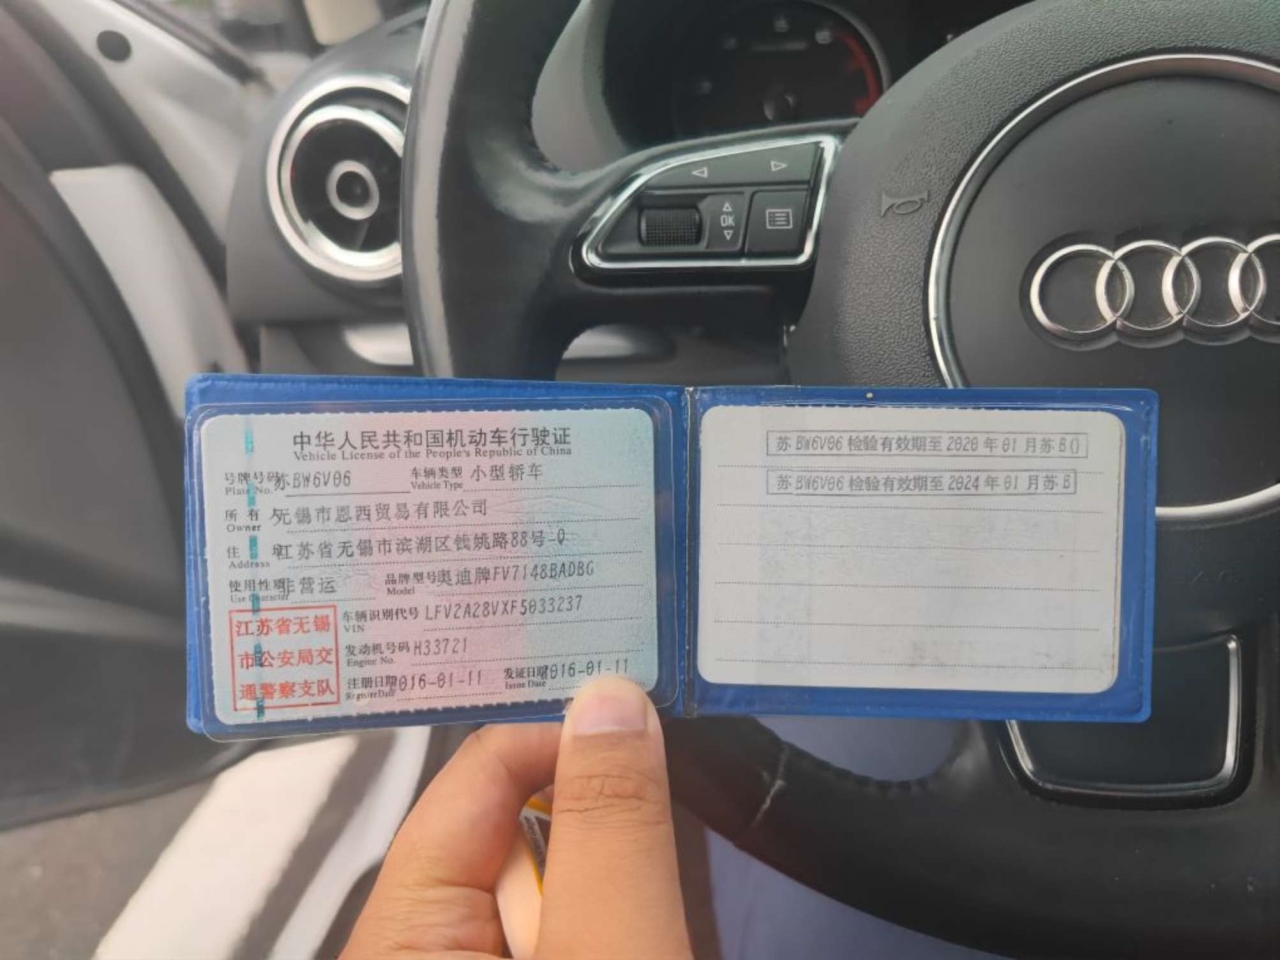 OK
中华人民共和国机动车行驶证
Vehicle License of the People's Republic of China
号牌号码 苏BW6V06 车辆类型 小型轿车
Plate No. Vehicle Type
所有 无锡市恩西贸易有限公司
Owner
住 江苏省无锡市滨湖区钱姚路88号-Q
Address
使用性 非营运 品牌型号 奥迪牌FV7148BADBG
Use Character Model
江苏省无锡
市公安局交
通警察支队
车辆识别代号 LFV2A28VXF5033237
VIN
发动机号码 H33721
Engine No.
注册日期 016-01-11 发证日期 016-01-11
Register Date Issue Date
苏BW6V06 检验有效期至2020年01月苏B()
苏BW6V06 检验有效期至2024年01月苏B